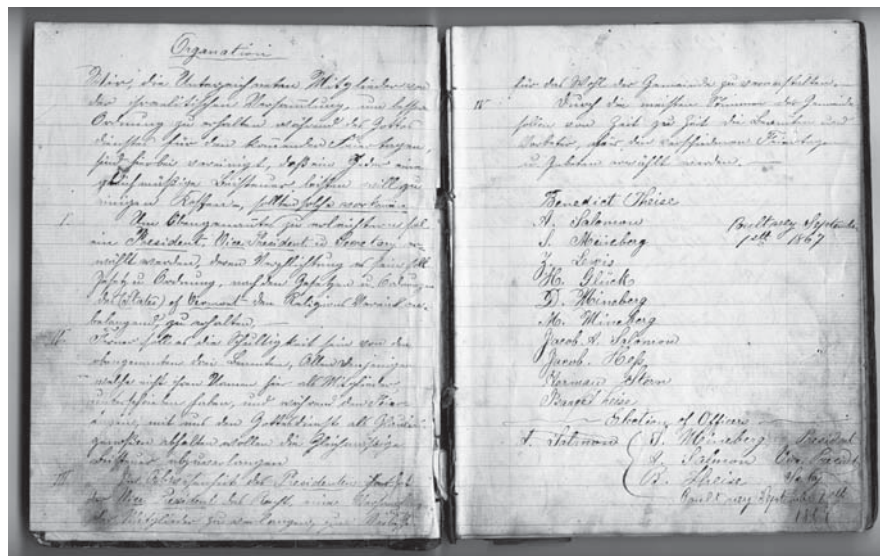 Organation
Wir, die Unterzeichneten Mitglieder von
der israelitischen Versammlung, um bessere
Ordnung zu erhalten während des Gottes
dienstes für den komenden Feiertagen,
sind hierbei vereinigt, daß ein Jeder eine
gleichmäßige Beisteuer leisten will zu
einigen Kosten, sollten solche
I. Um Obengenanntes zu erleichtern soll
ein President, Vice President u Secretary er-
wählt werden, deren Verpflichtung es sein soll
Gesetz u Ordnung, nach den Gesetzen u. Ordnungen
des (States) of Vermont den Religions
belangend, zu erhalten.
II. Ferner soll es die Schuldigkeit sein von den
obengenannten drei Beamten, Allen denjenigen
welche nicht ihren Namen hier als Mitglieder
unterschrieben haben, und während den Feier-
tagen, mit uns den Gottesdienst als Glaubens
genossen abhalten wollen die Gleichmäßige
Beisteuer abzuverlangen
III. In Abwesenheit des Presidenten
der Vice President das Recht, eine
der Mitglieder zu verlangen,
für das Wohl der Gemeinde zu veranstalten.
IV. Durch die meisten Stimmen der Gemeinde
sollen von Zeit zu Zeit die Beamten und
Vorbeter, für die verschiedenen Feiertage
u. Gebeten erwählt werden.
Benedict Theise
A. Salomon Poultney September
S. Meineberg 1st 1867
Z. Lewis
H. Glück
D. Mineberg
M. Mineberg
Jacob A. Salomon
Jacob. Heß
Herman Stern
Theise
Election of Officers
A. Salmon S. Mineberg President
A. Salomon Vice President
B. Theise
Poultney